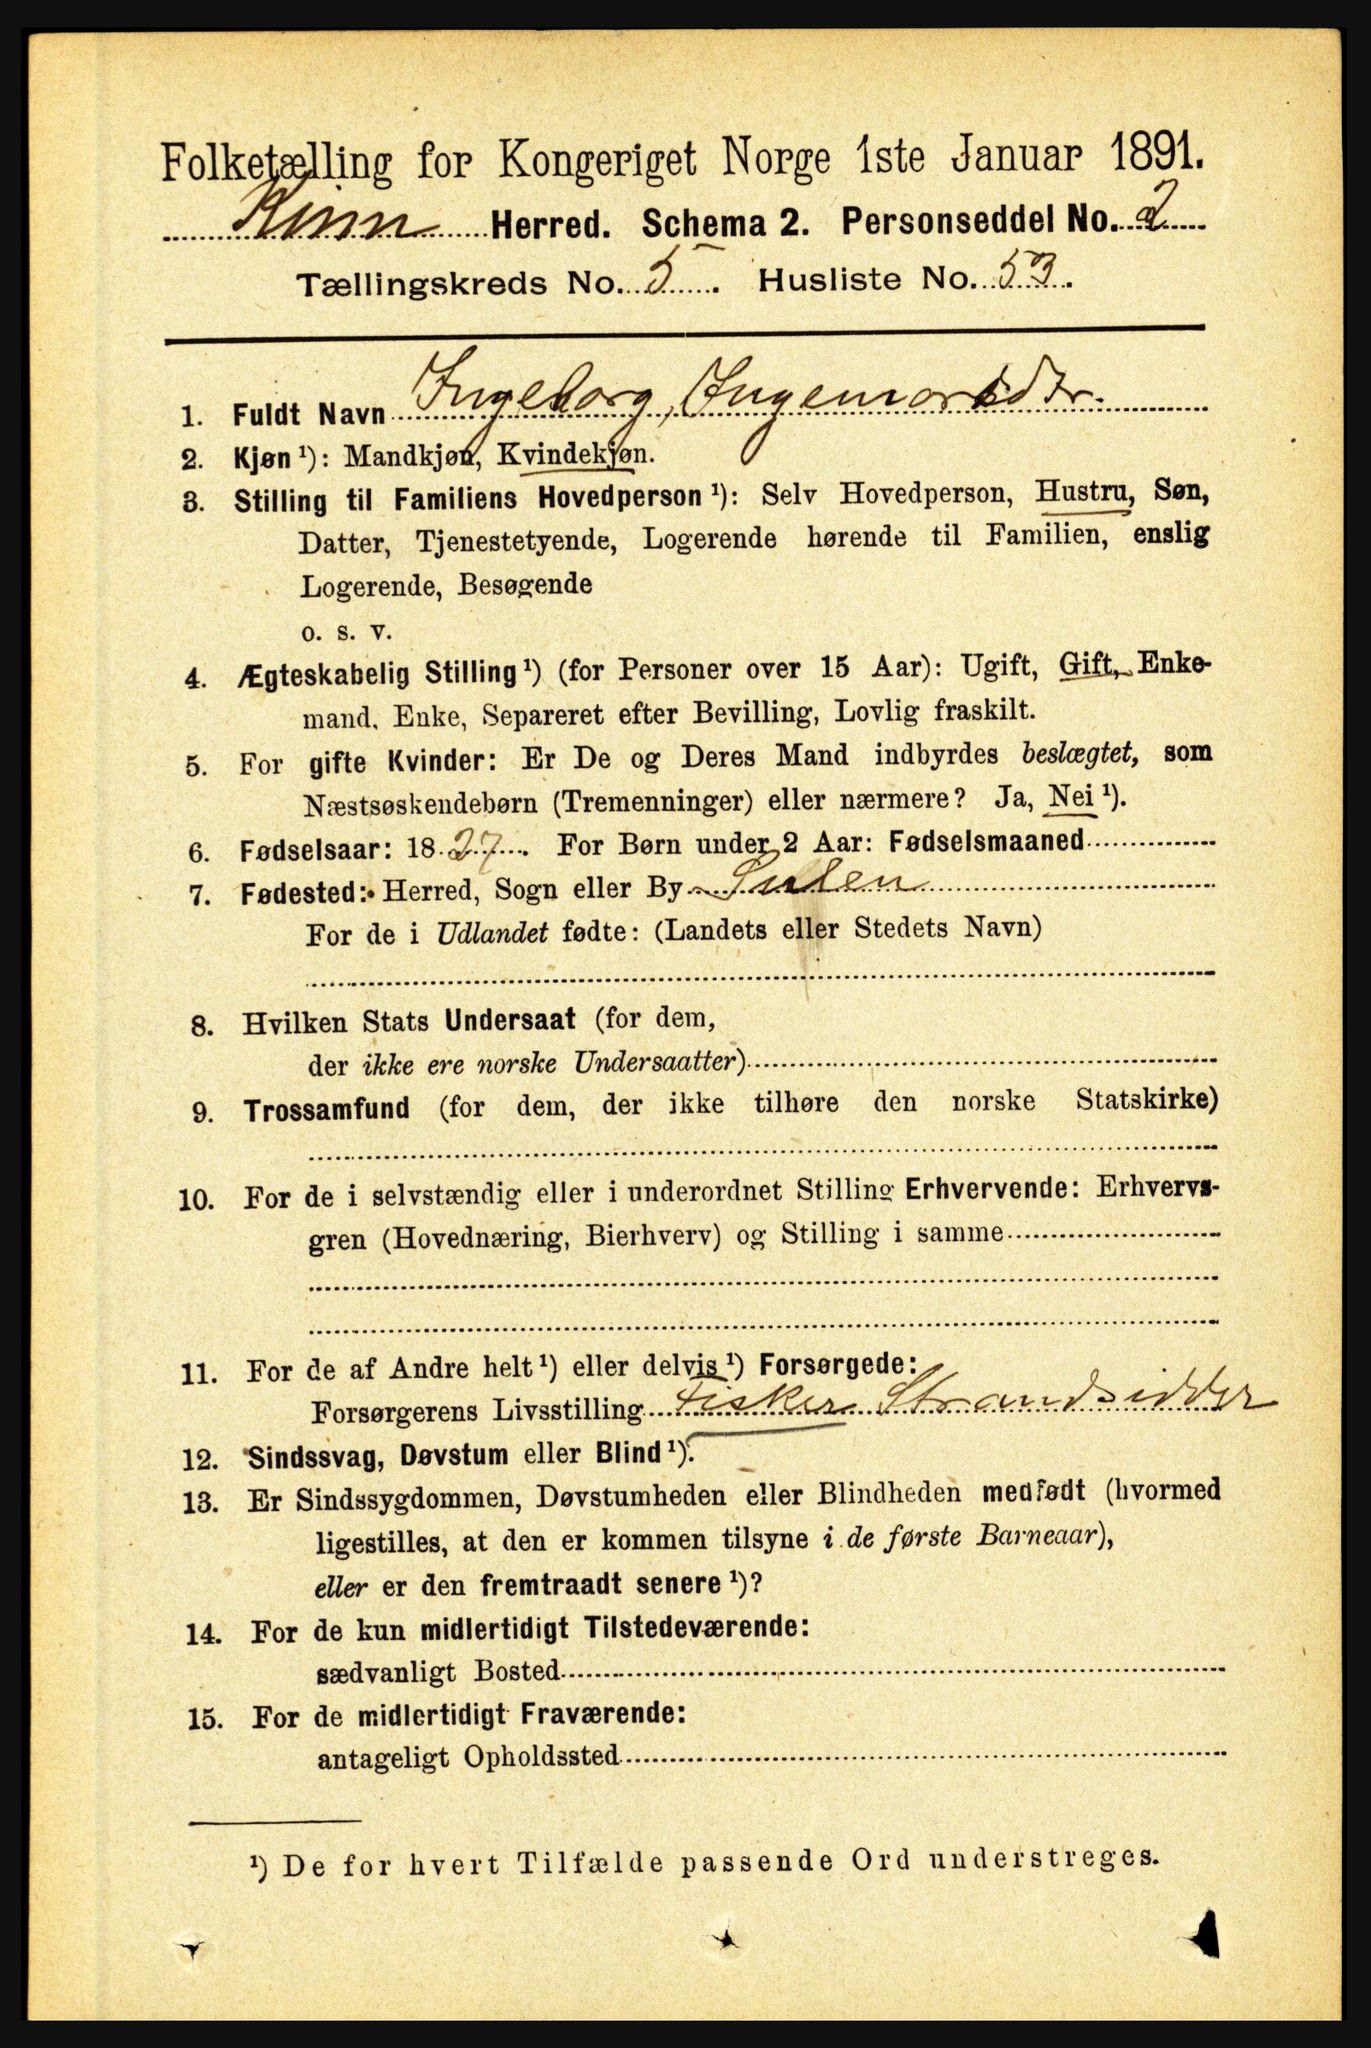 Folketælling for Kongeriget Norge 1ste Januar 1891.
Kinn Herred. Schema 2. Personseddel No. 2
Tællingskreds No. 5. Husliste No. 53.
1. Fuldt Navn Ingeborg Ingemarsdtr.
2. Kjøn ¹): Mandkjøn, Kvindekjøn.
3. Stilling til Familiens Hovedperson ¹): Selv Hovedperson, Hustru, Søn,
Datter, Tjenestetyende, Logerende hørende til Familien, enslig
Logerende, Besøgende
o. s. v.
4. Ægteskabelig Stilling ¹) (for Personer over 15 Aar): Ugift, Gift, Enke-
mand, Enke, Separeret efter Bevilling, Lovlig fraskilt.
5. For gifte Kvinder: Er De og Deres Mand indbyrdes beslægtet, som
Næstsøskendebørn (Tremenninger) eller nærmere? Ja, Nei ¹).
6. Fødselsaar: 1827. For Børn under 2 Aar: Fødselsmaaned
7. Fødested: Herred, Sogn eller By Sulen
For de i Udlandet fødte: (Landets eller Stedets Navn)
8. Hvilken Stats Undersaat (for dem,
der ikke ere norske Undersaatter)
9. Trossamfund (for dem, der ikke tilhøre den norske Statskirke)
10. For de i selvstændig eller i underordnet Stilling Erhvervende: Erhvervs-
gren (Hovednæring, Bierhverv) og Stilling i samme
11. For de af Andre helt ¹) eller delvis ¹) Forsørgede:
Forsørgerens Livsstilling Fisker Strandsidder
12. Sindssvag, Døvstum eller Blind ¹).
13. Er Sindssygdommen, Døvstumheden eller Blindheden medfødt (hvormed
ligestilles, at den er kommen tilsyne i de første Barneaar),
eller er den fremtraadt senere ¹)?
14. For de kun midlertidigt Tilstedeværende:
sædvanligt Bosted
15. For de midlertidigt Fraværende:
antageligt Opholdssted
¹) De for hvert Tilfælde passende Ord understreges.